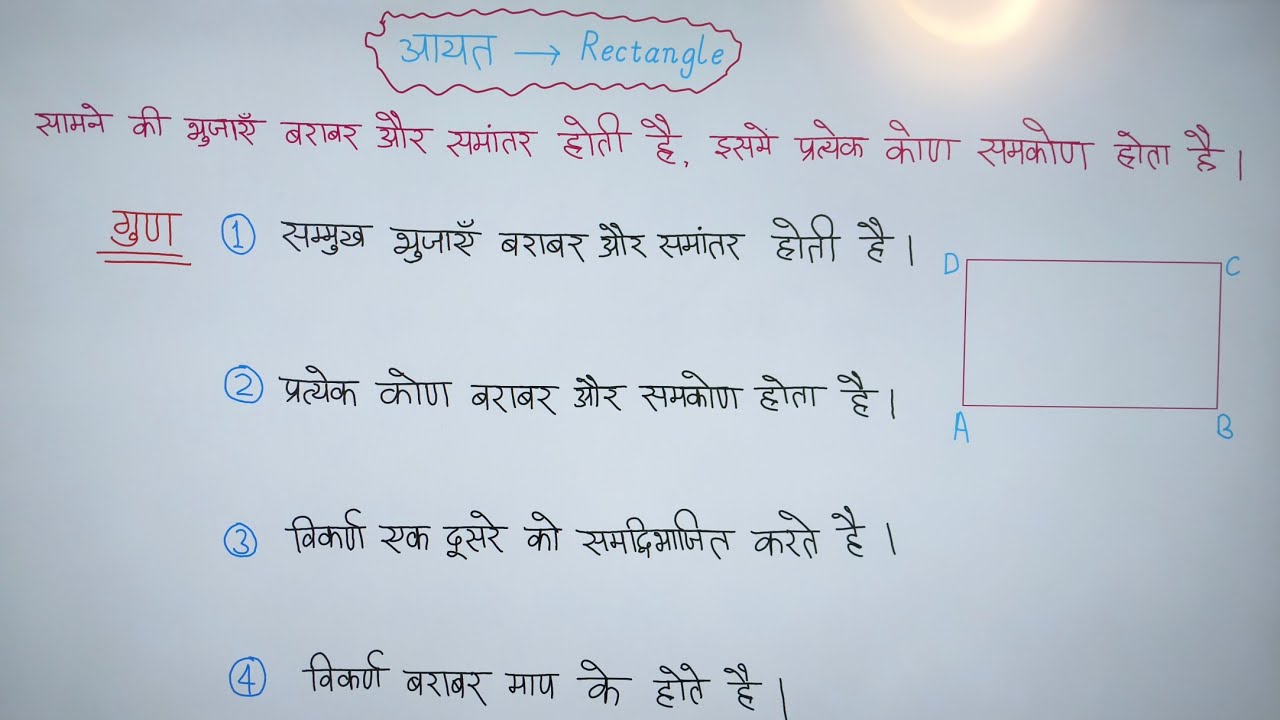 आयत → Rectangle
सामने की भुजाएँ बराबर और समांतर होती है, इसमें प्रत्येक कोण समकोण होता है।
गुण ① सम्मुख भुजाएँ बराबर और समांतर होती है।
D C
② प्रत्येक कोण बराबर और समकोण होता है।
A B
③ विकर्ण एक दूसरे को समद्विभाजित करते है।
④ विकर्ण बराबर माप के होते है।